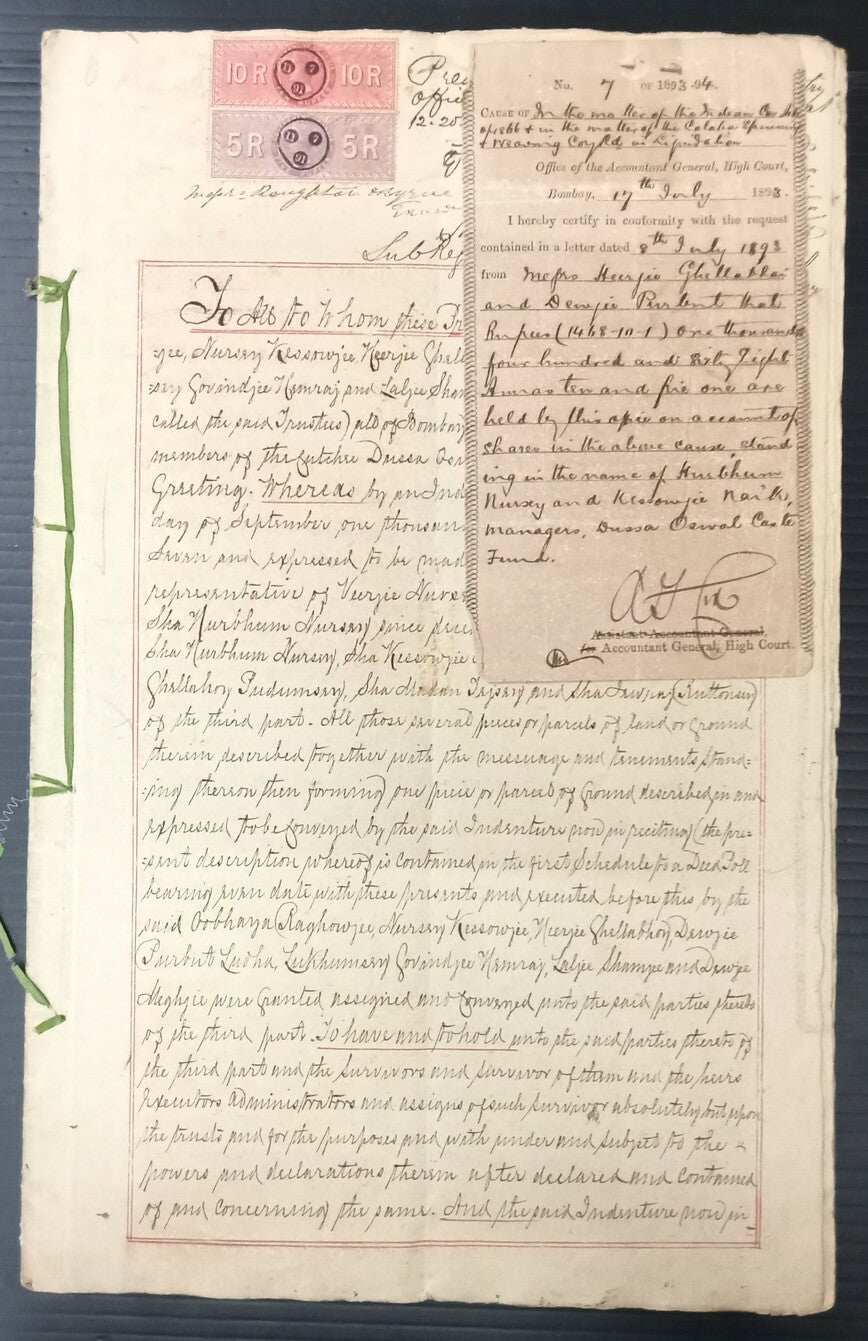 10 R 10 R
5 R 5 R
12-20
Sub Reg
No. 7 OF 1893-94.
CAUSE OF In the matter of the Indian Cos Act
of 1866 & in the matter of the Colaba Spinning
& Weaving Coy Ld in Liquidation
Office of the Accountant General, High Court,
Bombay, 17th July 1893.
I hereby certify in conformity with the request
contained in a letter dated 8th July 1893
from Messrs Heerjee Ghellabhai
and Dewjee Purbut that
Rupees (1468-10-1) One thousand
four hundred and Sixty Eight
Annas ten and pie one are
held by this office on account of
shares in the above cause, stand
ing in the name of Hurbhum
Nursey and Kessowjee Naik,
Managers, Dussa Oswal Caste
Fund.
Assistant Accountant General,
for Accountant General, High Court.
To All to Whom these Pr
=jee, Nursey Kessowjee, Heerjee Ghell
=sey Govindjee Hemraj and Laljee Sham
called the said Trustees) all of Bombay
members of the Cutchee Dussa Osw
Greeting. Whereas by an Ind
day of September one thousan
Seven and expressed to be mad
representative of Veerjee Nurse
Sha Hurbhum Nursey since dece
Sha Hurbhum Nursey, Sha Kessowjee
Ghellahoy Pudumsey, Sha Madan Tejsey and Sha Ruttonsey
of the third part. All those several pieces or parcels of land or Ground
therein described together with the messuage and tenements stand=
=ing thereon then forming one piece or parcel of Ground described in and
expressed to be Conveyed by the said Indenture now in reciting (the pre=
=sent description whereof is contained in the first Schedule to a Deed Poll
bearing even date with these presents and executed before this by the
said Oobhaya Raghowjee, Nursey Kessowjee, Heerjee Ghellabhoy, Dewjee
Purbut Ludha, Lukhumsey Govindjee Hemraj, Laljee Shamjee and Dewjee
Meghjee were Granted assigned and Conveyed unto the said parties thereto
of the third part. To have and to hold unto the said parties thereto of
the third part and the Survivors and Survivor of them and the heirs
Executors Administrators and assigns of such Survivor absolutely but upon
the trusts and for the purposes and with under and Subject to the
powers and declarations therein after declared and contained
of and concerning the same. And the said Indenture now in